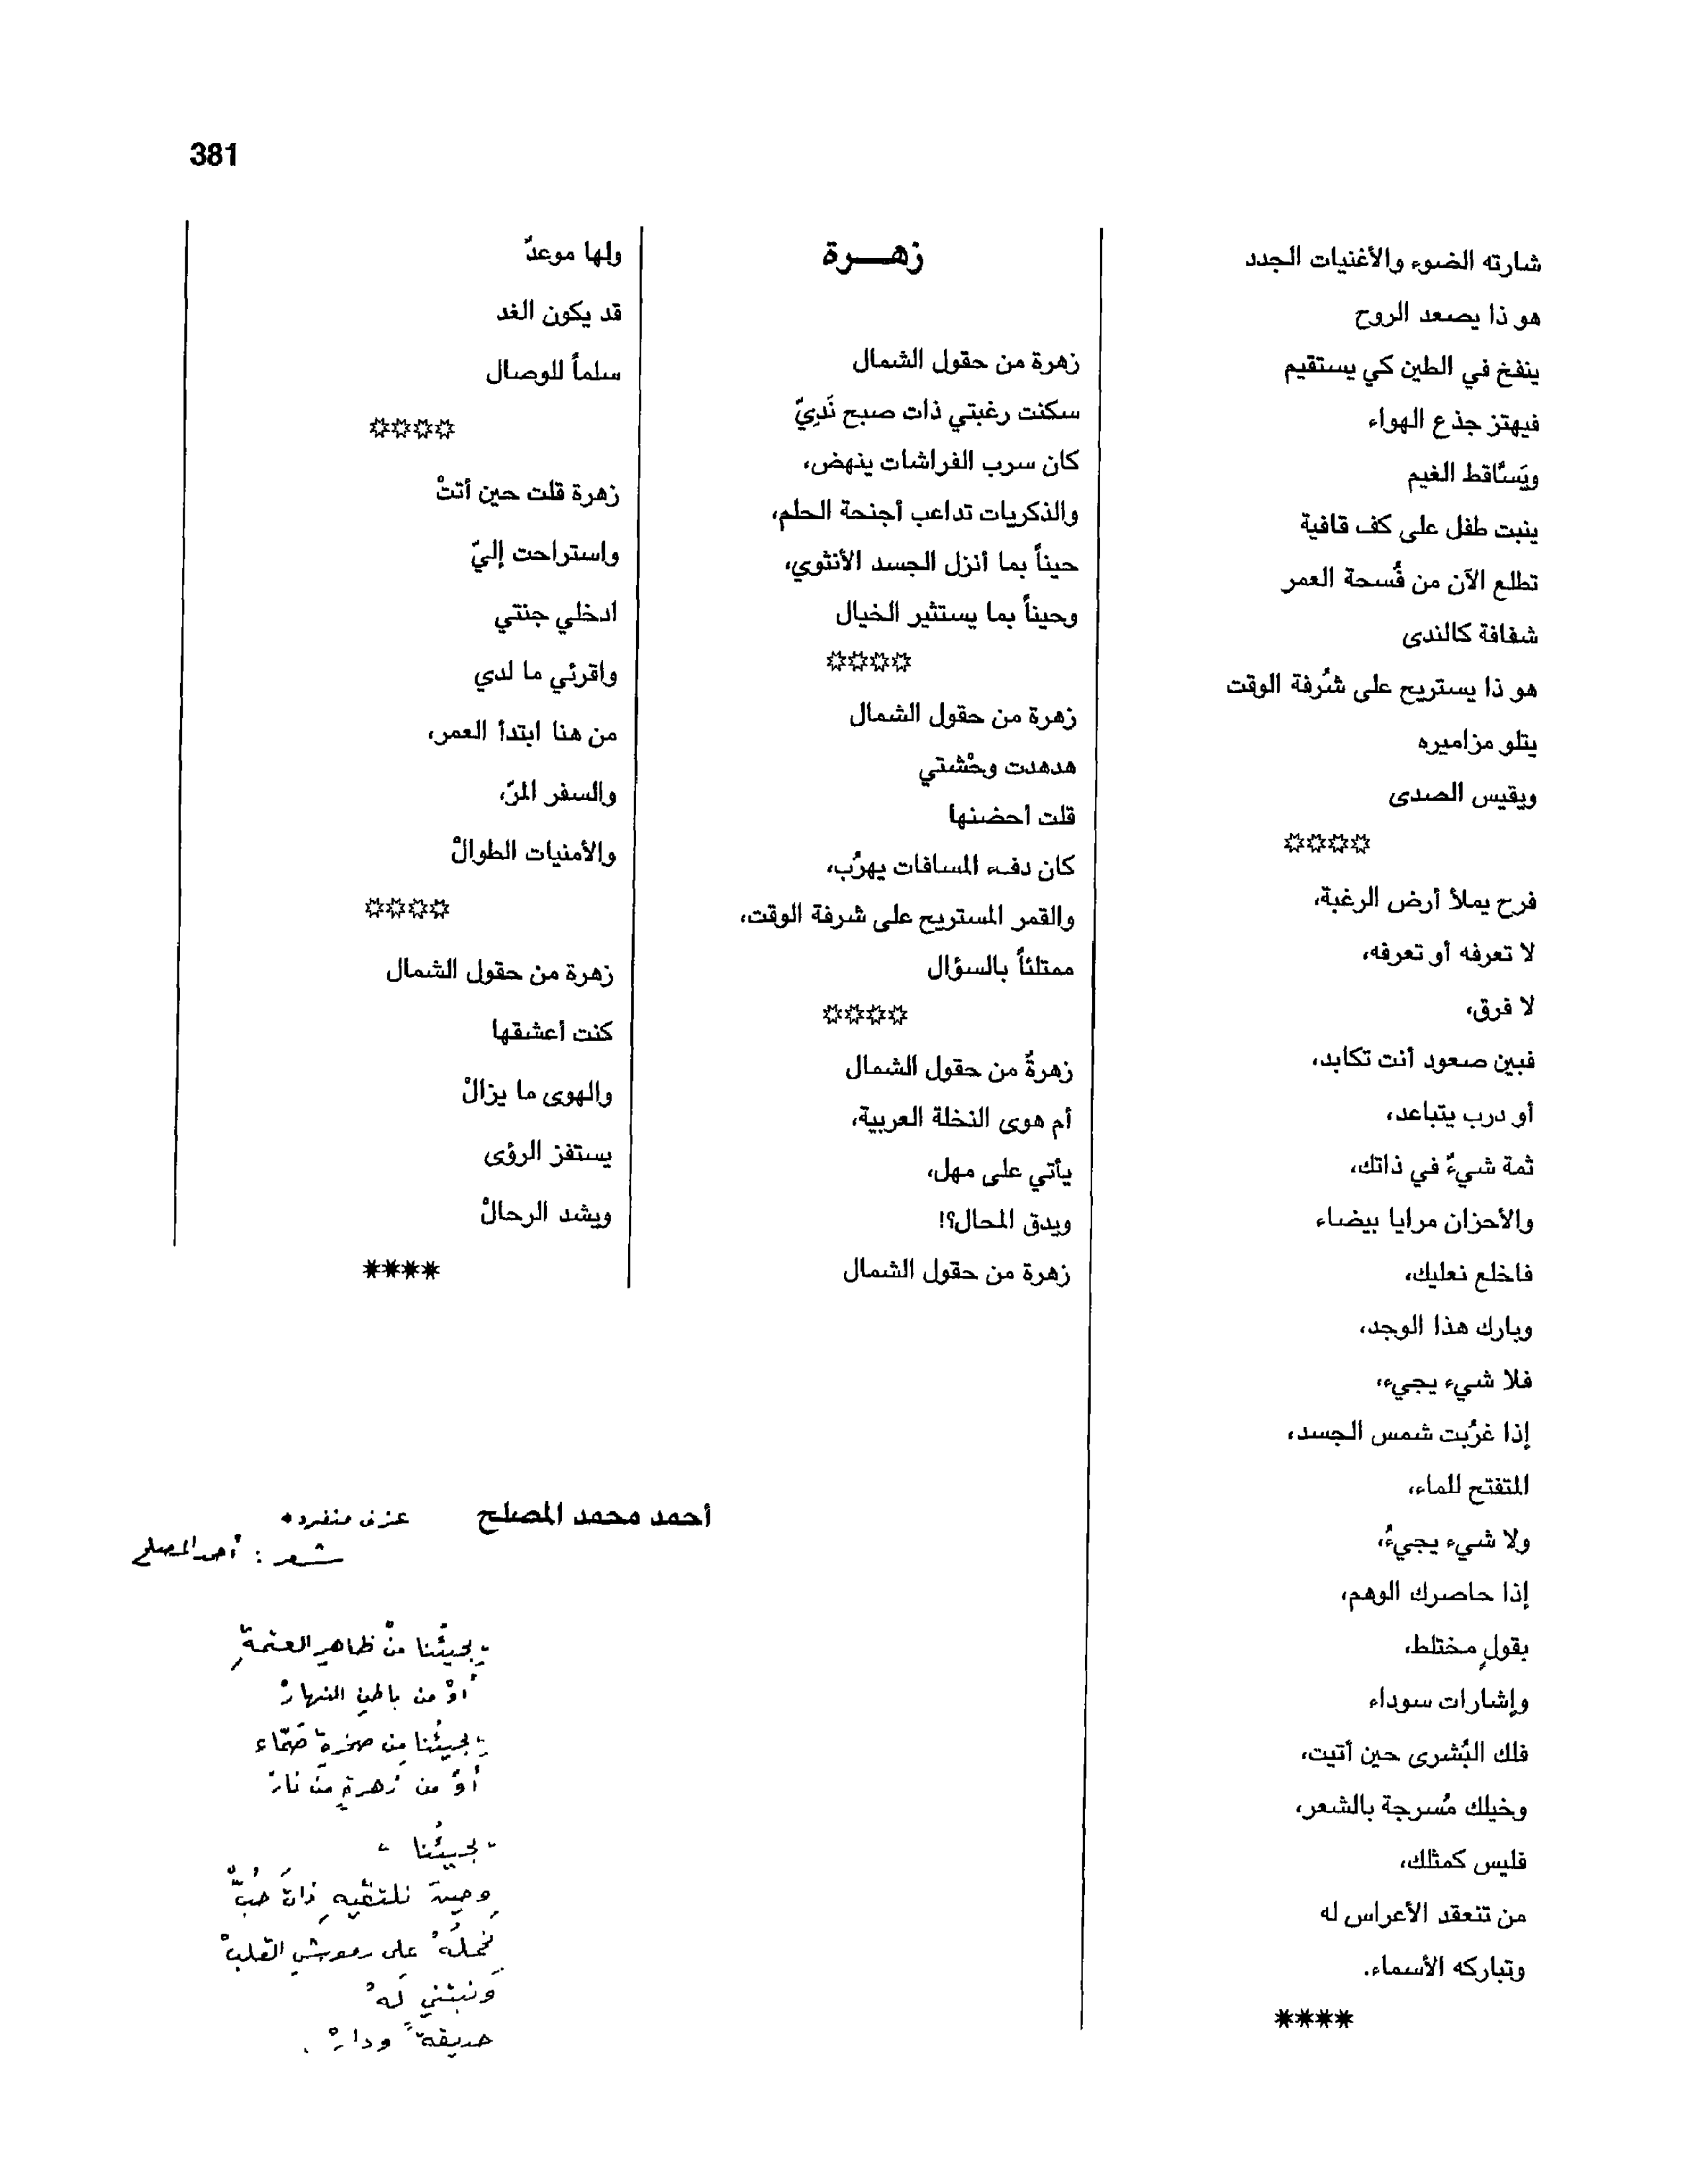 381
شارته الضوء والأغنيات الجدد
هو ذا يصعد الروح
ينفخ في الطين كي يستقيم
فيهتز جذع الهواء
ويَسَّاقط الغيم
ينبت طفل على كف قافية
تطلع الآن من فُسحة العمر
شفافة كالندى
هو ذا يستريح على شُرفة الوقت
يتلو مزاميره
ويقيس الصدى
☼☼☼☼
فرح يملأ أرض الرغبة،
لا تعرفه أو تعرفه،
لا فرق،
فبين صعود أنت تكابد،
أو درب يتباعد،
ثمة شيءٌ في ذاتك،
والأحزان مرايا بيضاء
فاخلع نعليك،
وبارك هذا الوجد،
فلا شيء يجيء،
إذا غرُبت شمس الجسد،
المتفتح للماء،
ولا شيء يجيءُ،
إذا حاصرك الوهم،
بقولٍ مختلط،
وإشارات سوداء
فلك البُشرى حين أتيت،
وخيلك مُسرجة بالشعر،
فليس كمثلك،
من تنعقد الأعراس له
وتباركه الأسماء.
****
زهـــرة
زهرة من حقول الشمال
سكنت رغبتي ذات صبح نَدِيّ
كان سرب الفراشات ينهض،
والذكريات تداعب أجنحة الحلم،
حيناً بما أنزل الجسد الأنثوي،
وحيناً بما يستثير الخيال
☼☼☼☼
زهرة من حقول الشمال
هدهدت وحْشتي
قلت احضنها
كان دفء المسافات يهرُب،
والقمر المستريح على شرفة الوقت،
ممتلئاً بالسؤال
☼☼☼☼
زهرةٌ من حقول الشمال
أم هوى النخلة العربية،
يأتي على مهل،
ويدق المحال؟!
زهرة من حقول الشمال
ولها موعدٌ
قد يكون الغد
سلماً للوصال
☼☼☼☼
زهرة قلت حين أتتْ
واستراحت إليّ
ادخلي جنتي
واقرئي ما لدي
من هنا ابتدأ العمر،
والسفر المرّ،
والأمنيات الطوالْ
☼☼☼☼
زهرة من حقول الشمال
كنت أعشقها
والهوى ما يزالْ
يستفز الرؤى
ويشد الرحالْ
****
أحمد محمد المصلح
عزف منفرد
شعر : أحمد المصلح
يجيئُنا منْ ظاهرِ العتمةِ
أوْ من باطنِ النهارْ
يجيئُنا من صخرةٍ صَمّاء
أوْ من زهرةٍ منْ نارْ
يجيئُنا -
وحينَ نلتقيهِ ذاتَ حُبٍّ
نحملُهُ على رموشِ القلبْ
وَنبتني لَهُ
حديقةً ودارْ .